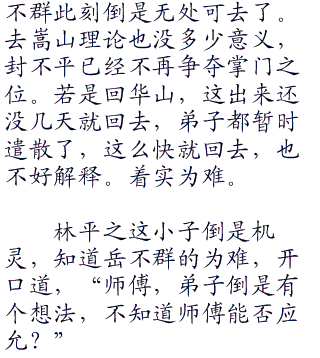 不群此刻倒是无处可去了。
去嵩山理论也没多少意义，
封不平已经不再争夺掌门之
位。若是回华山，这出来还
没几天就回去，弟子都暂时
遣散了，这么快就回去，也
不好解释。着实为难。
林平之这小子倒是机
灵，知道岳不群的为难，开
口道，“师傅，弟子倒是有
个想法，不知道师傅能否应
允？”